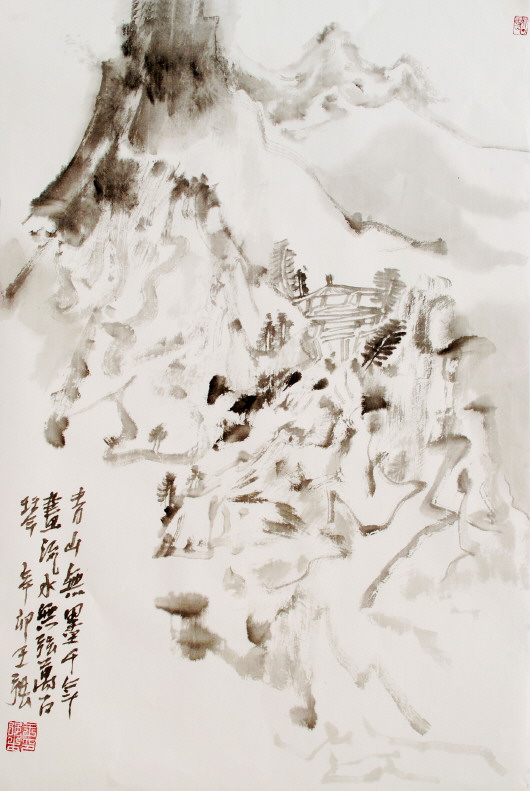 青山無墨千年
畫流水無弦萬古
琴 辛卯 王強